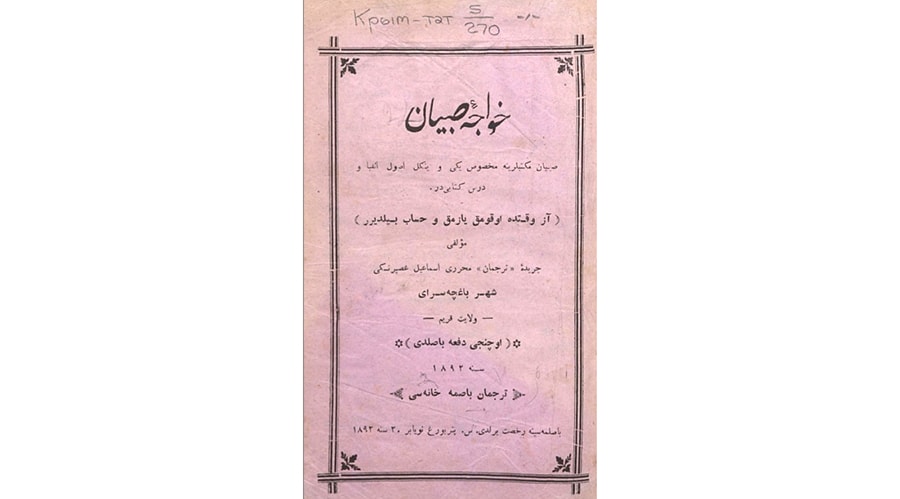 Крым-тат 5/270 -/-
خواجهٔ صبیان
صبیان مکتبلرینه مخصوص یکی و ینکل اصول الفبا و
درس کتابی‌در.
( آز وقتده اوقومق یازمق و حساب بیلدیرر )
مؤلفی
جریدهٔ «ترجمان» محرری اسماعیل غصپرنسکی
شهر باغچه‌سرای
— ولایت قریم —
( اوچنجی دفعه باصلدی )
سنه ١٨٩٢
ترجمان باصمه خانه‌سی
باصلمه‌سینه رخصت برلدی، س. پتربورغ نویابر ٣٠ سنه ١٨٩٢